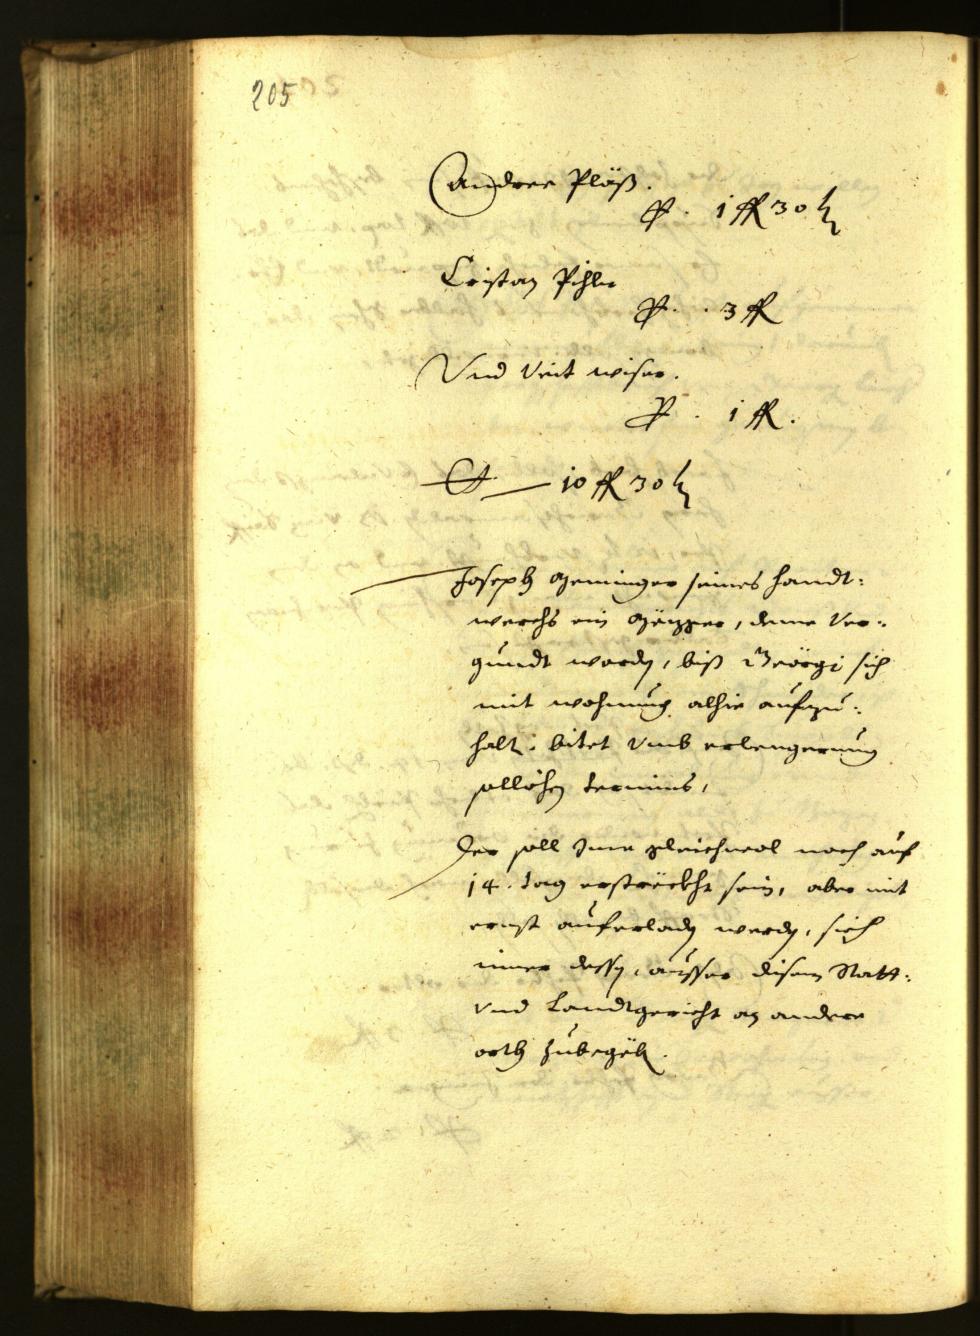 205
Andree Plöß.
P. 1 fl 30 k
Cristan Pihler
P. . 3 fl
Vnd Veit wiser.
P . 1 fl.
10 fl 30 k
Joseph Geminger seines handt:
werchs ein, deme Ver:
gundt worden, biß Geörgi sich
mit wohnung alhie aufzu:
halten: bitet vmb erlengerung
sollichen termins,
Der soll Ime gleichwol noch auf
14. tag erströckht sein, aber mit
ernst auferladen werden, sich
inner dessen, ausser disem Statt:
vnd Landtgericht an andere
orth zubegeben.